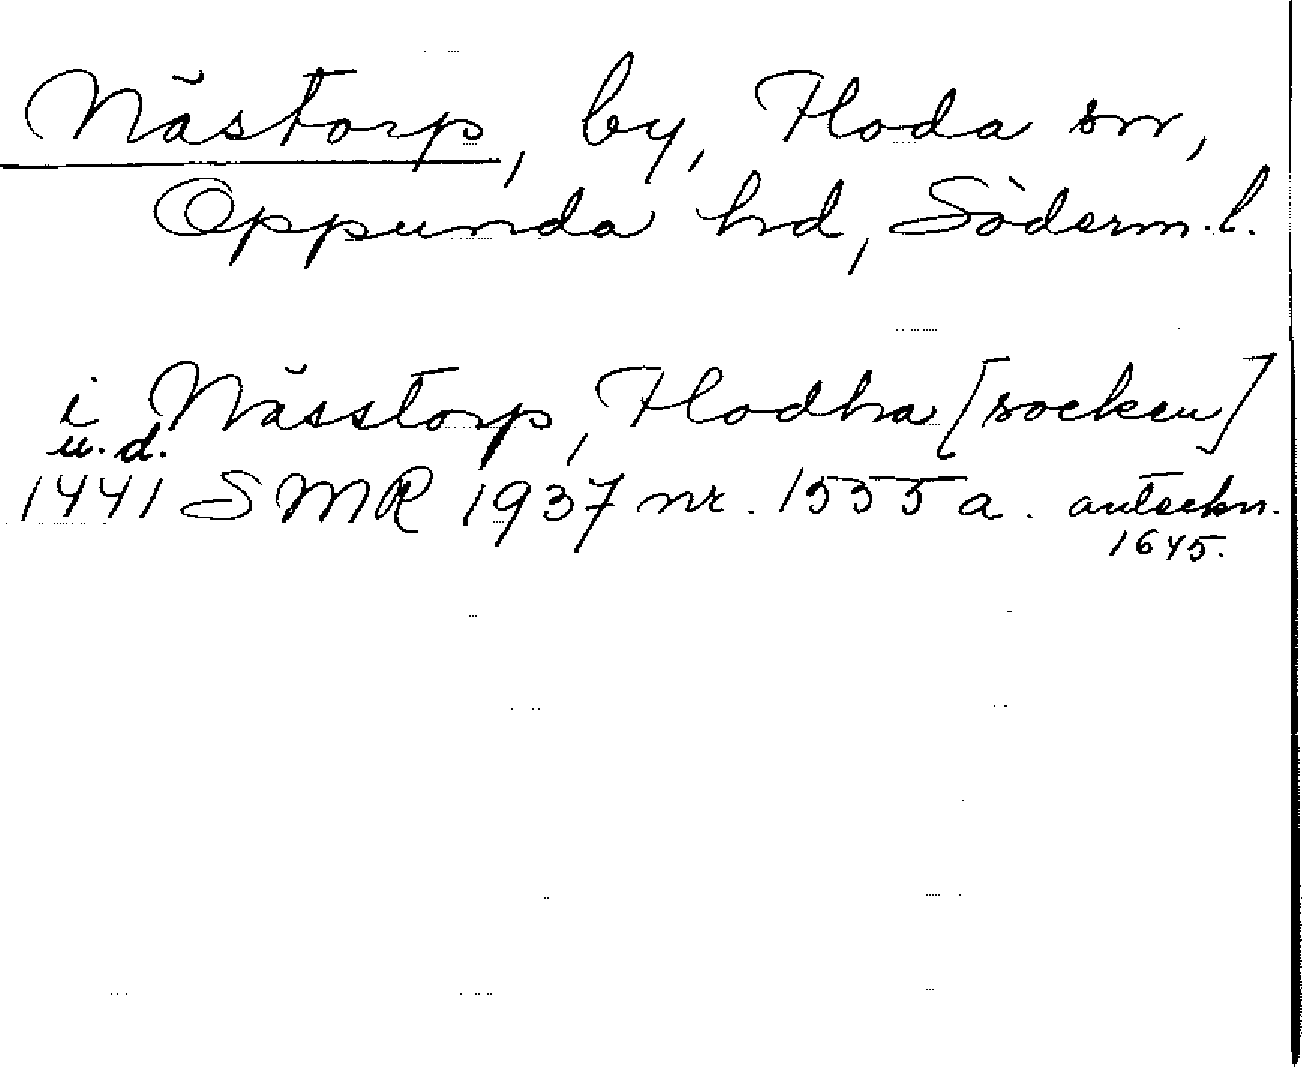 Nästorp, by, Floda sn,
Oppunda hd, Söderm. l.
i Nässtorp, Flodha [socken]
u.d.
1441 SMR 1937 nr. 1535 a. anteckn.
1645.